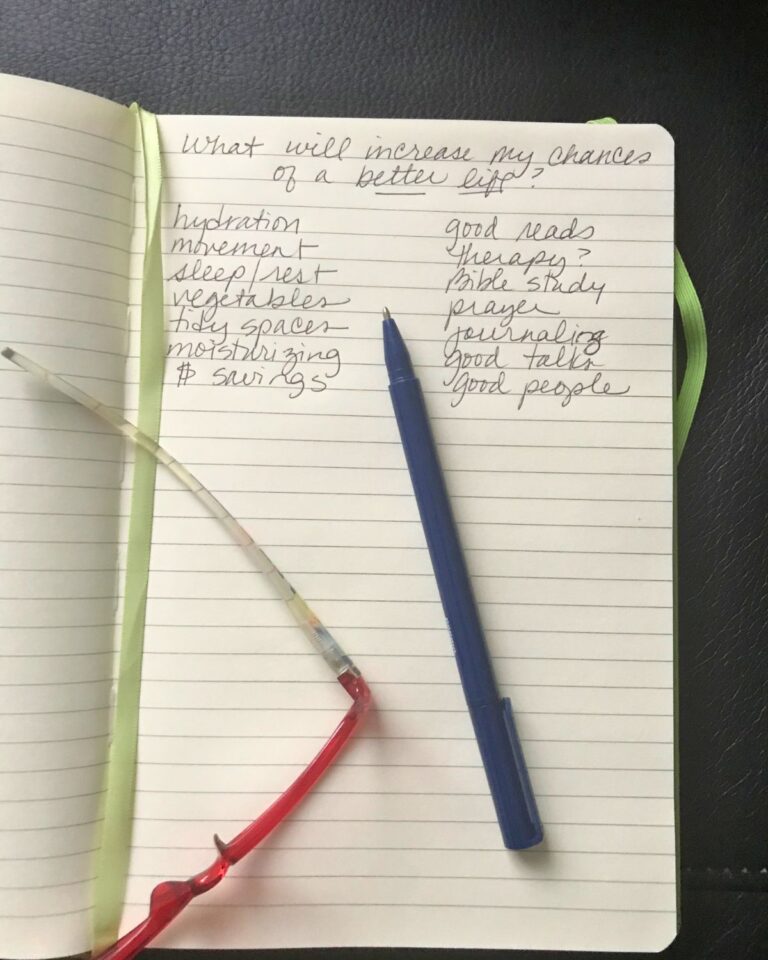 What will increase my chances
of a better life?
hydration
movement
sleep/rest
vegetables
tidy spaces
moisturizing
$ savings
good reads
therapy?
Bible study
prayer
journaling
good talks
good people